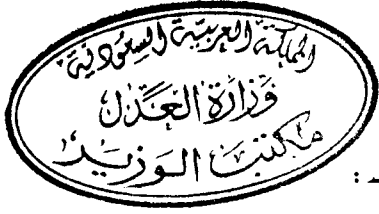 المملكة العربية السعودية
وزارة العدل
مكتب الوزير
: ـ